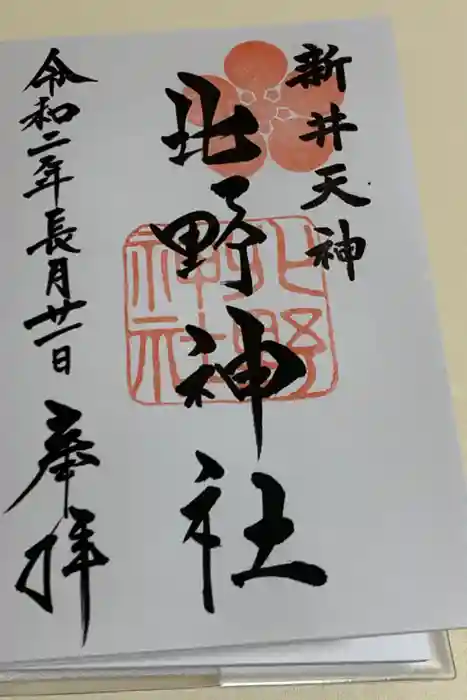 新井天神
北野神社
北野
神社
令和二年長月廿一日
奉拝